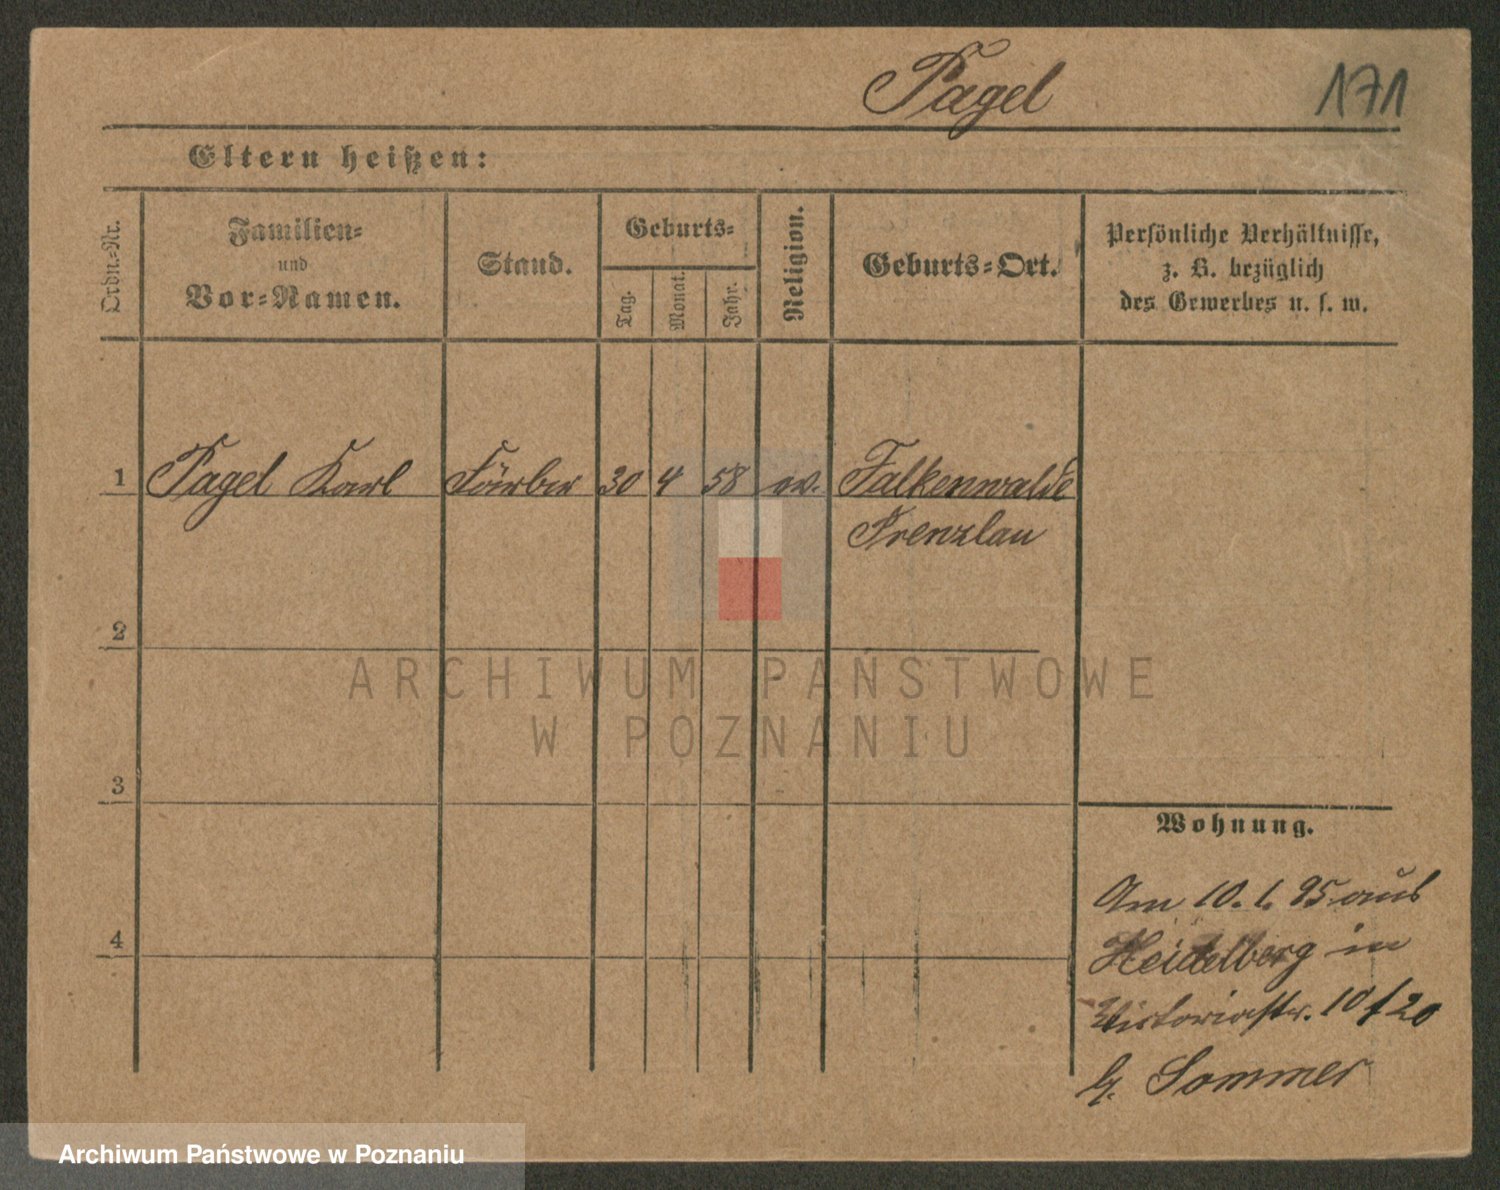 Pagel
171
Eltern heißen:
Ordn.-Nr.
Familien-
und
Vor-Namen.
Stand.
Geburts-
Tag.
Monat.
Jahr.
Religion.
Geburts-Ort.
Persönliche Verhältnisse,
z. B. bezüglich
des Gewerbes u. s. w.
1 Pagel Karl Färber 30 4 58 ev. Falkenwalde
Prenzlau
2
3
4
Wohnung.
Am 10. 1. 95 aus
Heidelberg in
Victoriastr. 10
b. Sommer
ARCHIWUM PAŃSTWOWE
W POZNANIU
Archiwum Państwowe w Poznaniu